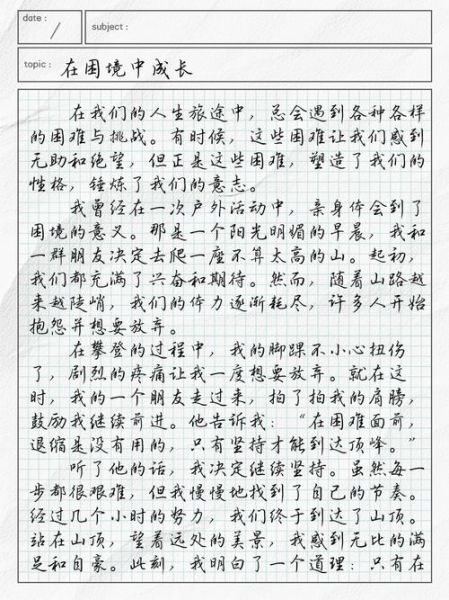 date：
/
subject：
topic： 在困境中成长
在我们的人生旅途中，总会遇到各种各样
的困难与挑战。有时候，这些困难让我们感到
无助和绝望，但正是这些困难，塑造了我们的
性格，锤炼了我们的意志。
我曾经在一次户外活动中，亲身体会到了
困境的意义。那是一个阳光明媚的早晨，我和
一群朋友决定去爬一座不算太高的山。起初，
我们都充满了兴奋和期待。然而，随着山路越
来越陡峭，我们的体力逐渐耗尽，许多人开始
抱怨并想要放弃。
在攀登的过程中，我的脚踝不小心扭伤
了，剧烈的疼痛让我一度想要放弃。就在这
时，我的一个朋友走过来，拍了拍我的肩膀，
鼓励我继续前进。他告诉我：“在困难面前，
退缩是没有用的，只有坚持才能到达顶峰。”
听了他的话，我决定继续坚持。虽然每一
步都很艰难，但我慢慢地找到了自己的节奏。
经过几个小时的努力，我们终于到达了山顶。
站在山顶，望着远处的美景，我感到无比的满
足和自豪。此刻，我明白了一个道理：只有在